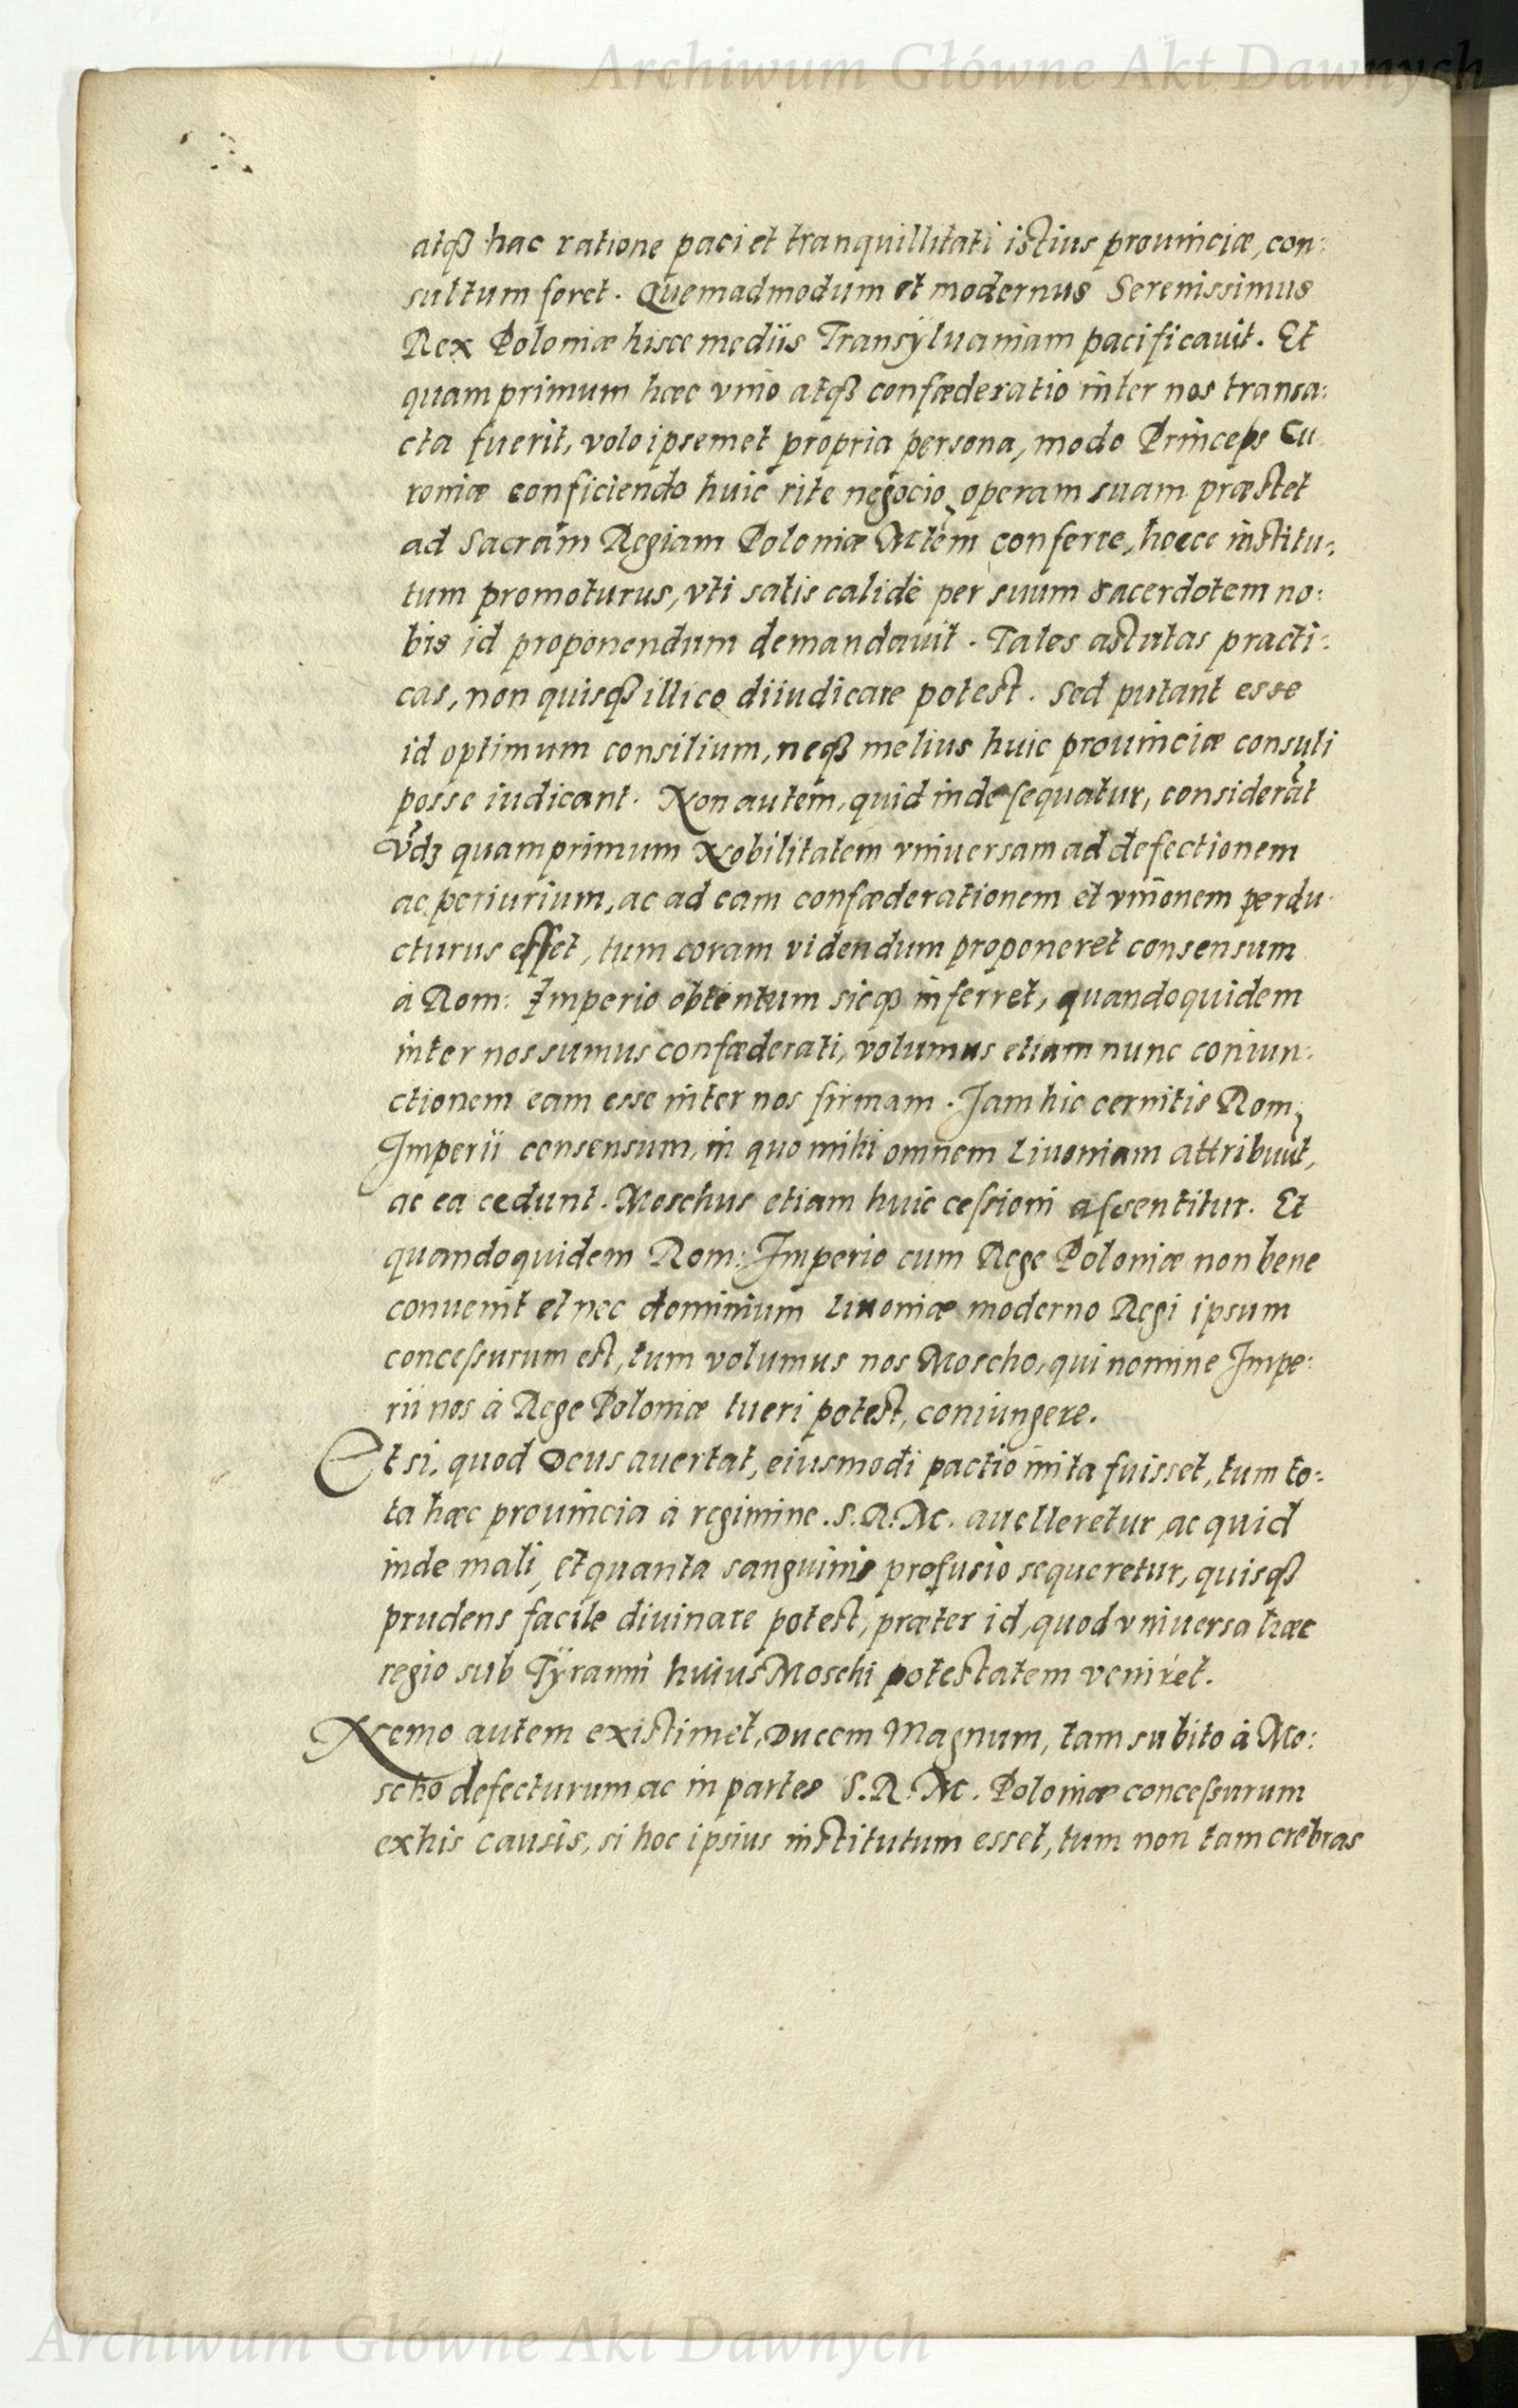 Archiwum Główne Akt Dawnych
atqȝ hac ratione paci et tranquillitati istius prouinciæ, con:
sultum foret. Quemadmodum et modernus Serenissimus
Rex Poloniæ hisce mediis Transÿluaniam pacificauit. Et
quamprimum hæc vnio atqȝ confæderatio inter nos transa:
cta fuerit, volo ipsemet propria persona, modo Princeps Cu
roniæ conficiendo huic rite negocio, operam suam præstet
ad Sacram Regiam Poloniæ Mtem conferre, hocce institu:
tum promoturus, vti satis calidè per suum sacerdotem no:
bis id proponendum demandauit. Tales astutas practi:
cas, non quisqȝ illico diiudicare potest. Sed putant esse
id optimum consilium, neqȝ melius huic prouinciæ consuli
posse iudicant. Non autem, quid inde sequatur, considerat
vdȝ quamprimum Nobilitatem vniuersam ad defectionem
ac periurium, ac ad eam confæderationem et vnionem perdu
cturus esset, tum coram videndum proponeret consensum
à Rom: Imperio obtentum sicqȝ inferret, quandoquidem
inter nos sumus confæderati, volumus etiam nunc coniun:
ctionem eam esse inter nos firmam. Jam hic cernitis Rom:
Imperii consensum, in quo mihi omnem Liuoniam attribuut,
ac ea cedunt. Moschus etiam huic cessioni assentitur. Et
quandoquidem Rom: Imperio cum Rege Poloniæ non bene
conuenit et nec dominium Liuoniæ moderno Regi ipsum
concessurum est, tum volumus nos Moscho, qui nomine Impe:
rii nos à Rege Poloniæ tueri potest, coniungere.
Et si, quod Deus auertat, eiusmodi pactio inita fuisset, tum to:
ta hæc prouincia à regimine. S.R.Mt. auelleretur, ac quid
inde mali, et quanta sanguinis profusio sequeretur, quisqȝ
prudens facile diuinare potest, præter id, quod vniuersa hæc
regio sub Tÿranni huius Moschi potestatem veniret.
Nemo autem existimet, Ducem Magnum, tam subito à Mo:
scho defecturum, ac in partes S.R.Mt. Poloniæ concessurum
ex his causis, si hoc ipsius institutum esset, tum non tam crebras
Archiwum Główne Akt Dawnych